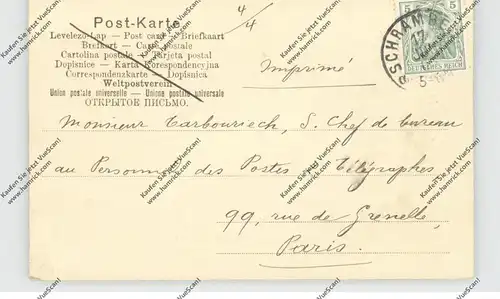 Post-Karte
Levelező-Lap — Post card — Briefkaart
Brefkort — Carte postale
Cartolina postale — Tarjeta postal
Dopisnice — Karta Korespondencyjna
Correspondenzkarte — Dopisnica
Weltpostverein
Union postale universelle — Unione postale universale
ОТКРЫТОЕ ПИСЬМО.
4/4
Imprimé
5 5
SCHRAMBE
DEUTSCHES REICH
Monsieur Carbouriech, S. Chef de bureau
au Personnel des Postes Télégraphes
99, rue de Grenelle,
Paris.
Kaufen Sie jetzt VueScan!
www.hamrick.com